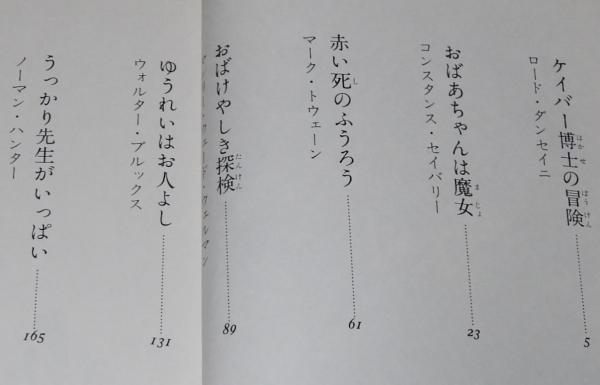 ケイバー博士の冒険
はかせ
ぼうけん
ロード・ダンセイニ
5
おばあちゃんは魔女
まじょ
コンスタンス・セイバリー
23
赤い死のふうろう
し
マーク・トウェーン
61
おばけやしき探検
たんけん
89
ゆうれいはお人よし
ウォルター・ブルックス
131
うっかり先生がいっぱい
ノーマン・ハンター
165